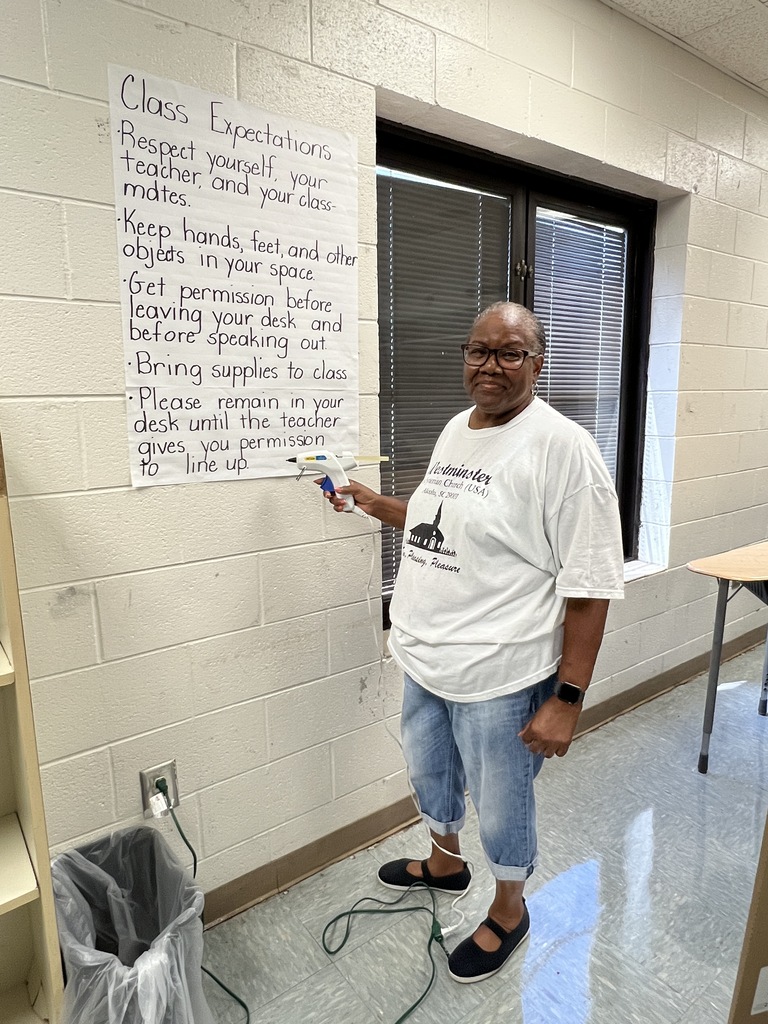 Class Expectations
·Respect yourself, your
teacher, and your class-
mates.
·Keep hands, feet, and other
objects in your space
·Get permission before
leaving your desk and
before speaking out
·Bring supplies to class
·Please remain in your
desk until the teacher
gives you permission
to line up.
Westminster
Church (USA)
SC
Pleasing, Pleasure